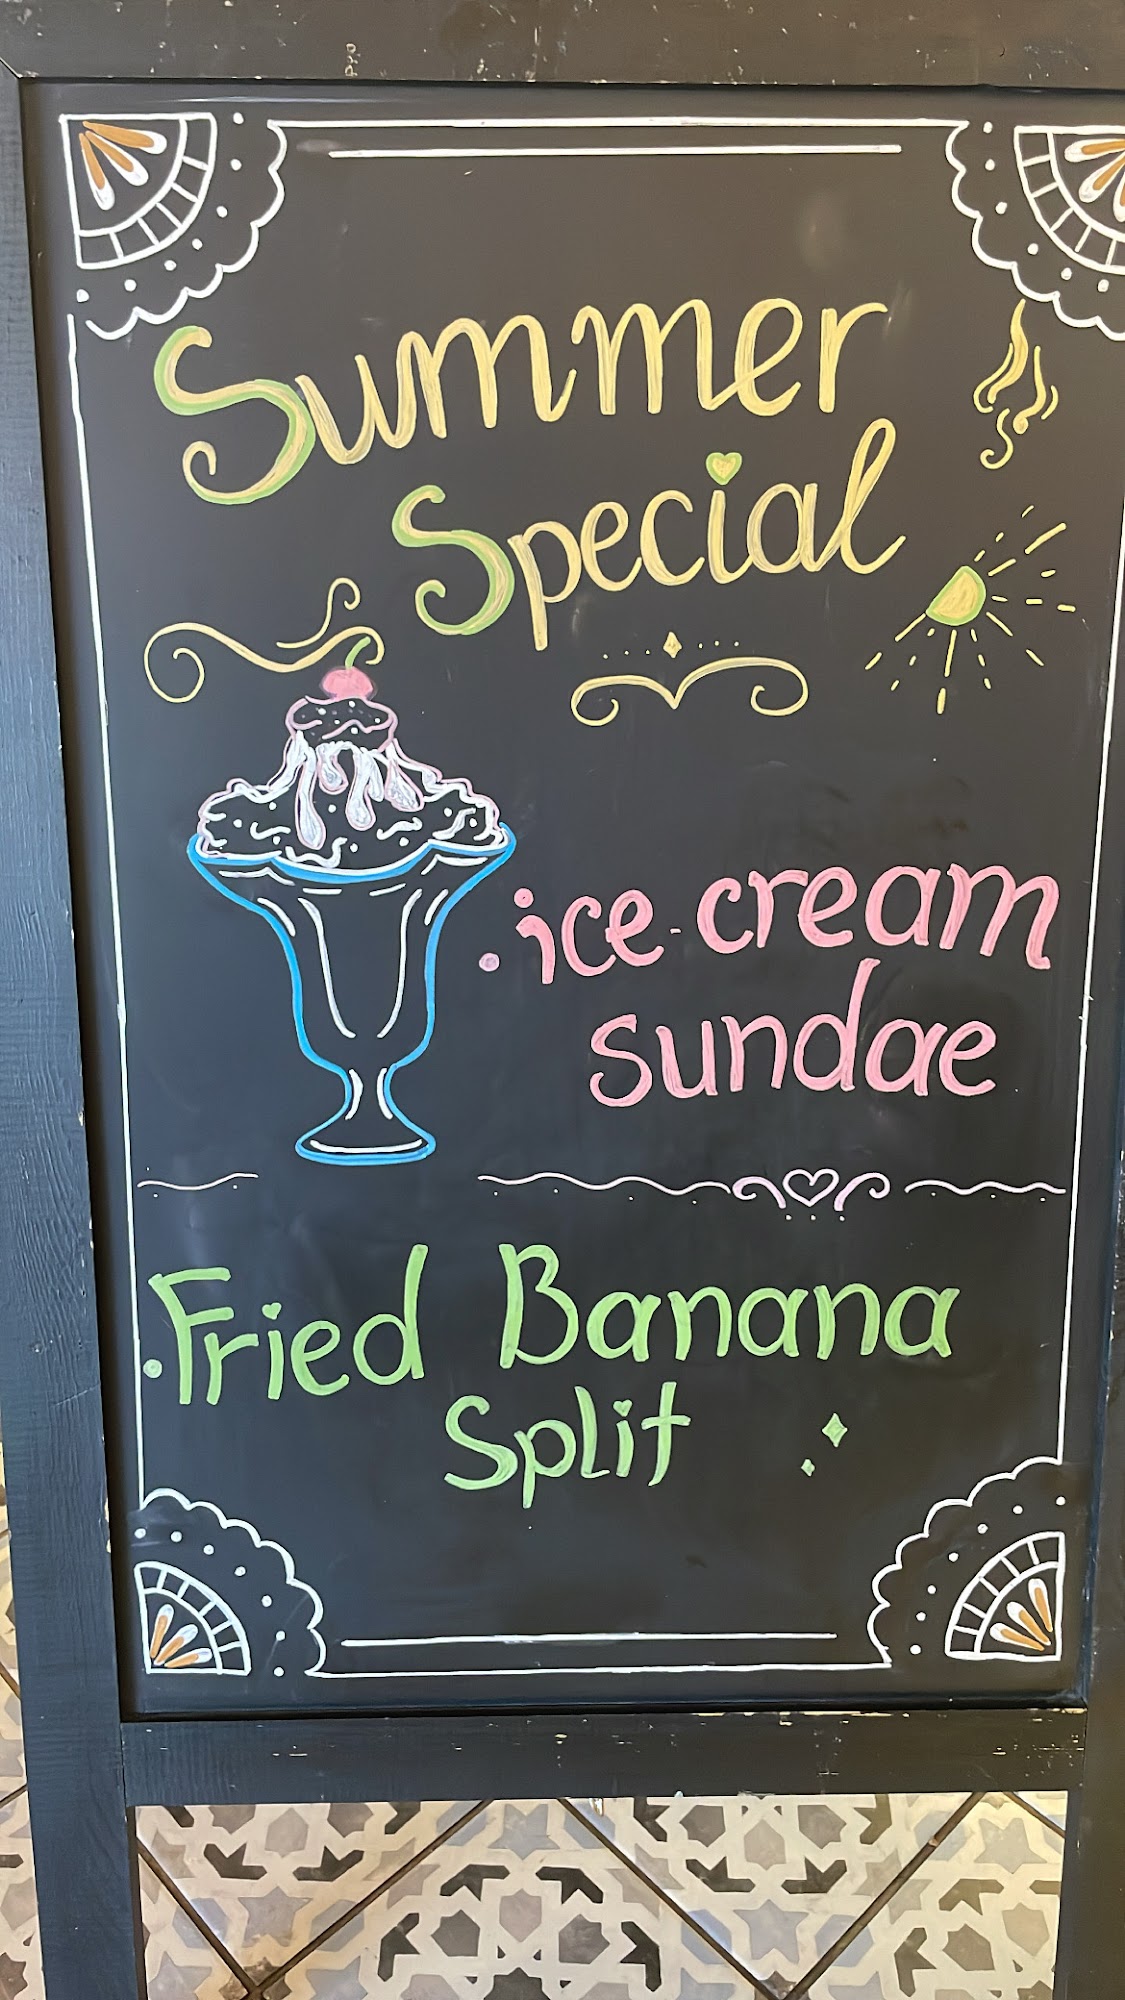 Summer
Special
• ice-cream
sundae
• Fried Banana
Split